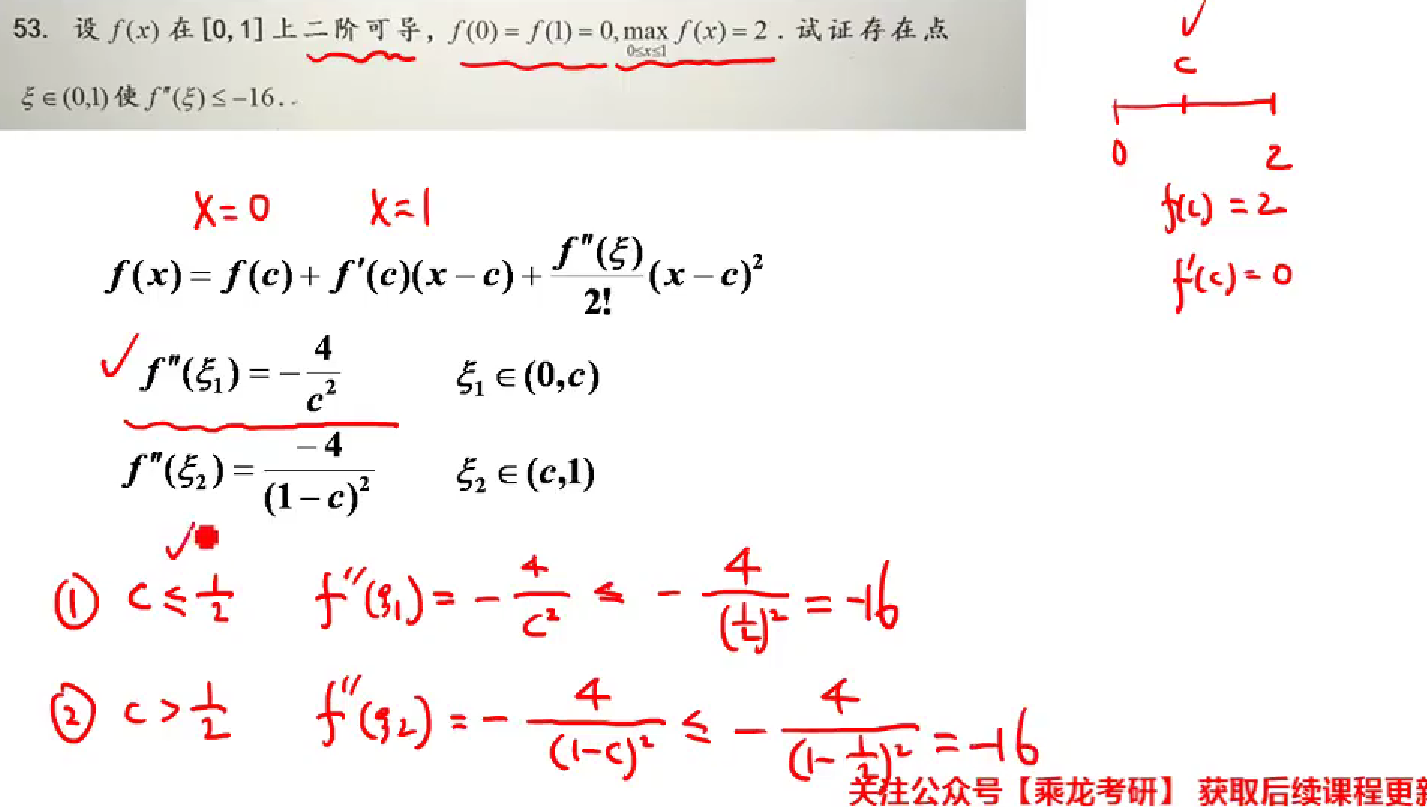 53. 设 f(x) 在 [0,1] 上二阶可导，f(0) = f(1) = 0, max f(x) = 2 . 试证存在点
0≤x≤1
ξ ∈ (0,1) 使 f″(ξ) ≤ −16 . .
c
0 2
f(c) = 2
f′(c) = 0
x = 0 x = 1
f(x) = f(c) + f′(c)(x − c) + f″(ξ)/2! (x − c)²
f″(ξ₁) = − 4/c² ξ₁ ∈ (0,c)
f″(ξ₂) = −4/(1 − c)² ξ₂ ∈ (c,1)
① c ≤ 1/2 f″(ξ₁) = − 4/c² ≤ − 4/(1/2)² = −16
② c > 1/2 f″(ξ₂) = − 4/(1−c)² ≤ − 4/(1−1/2)² = −16
关注公众号【乘龙考研】 获取后续课程更新